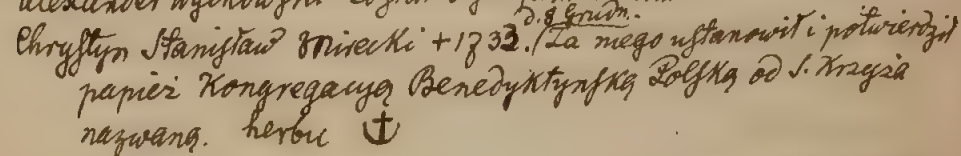 d. 8 Grudn.
Chrystyn Stanisław Mirecki + 1733. / Za niego ustanowił i potwierdził
papież Kongregacyą Benedyktyńską Polską od S. Krzyża
nazwaną. herbu